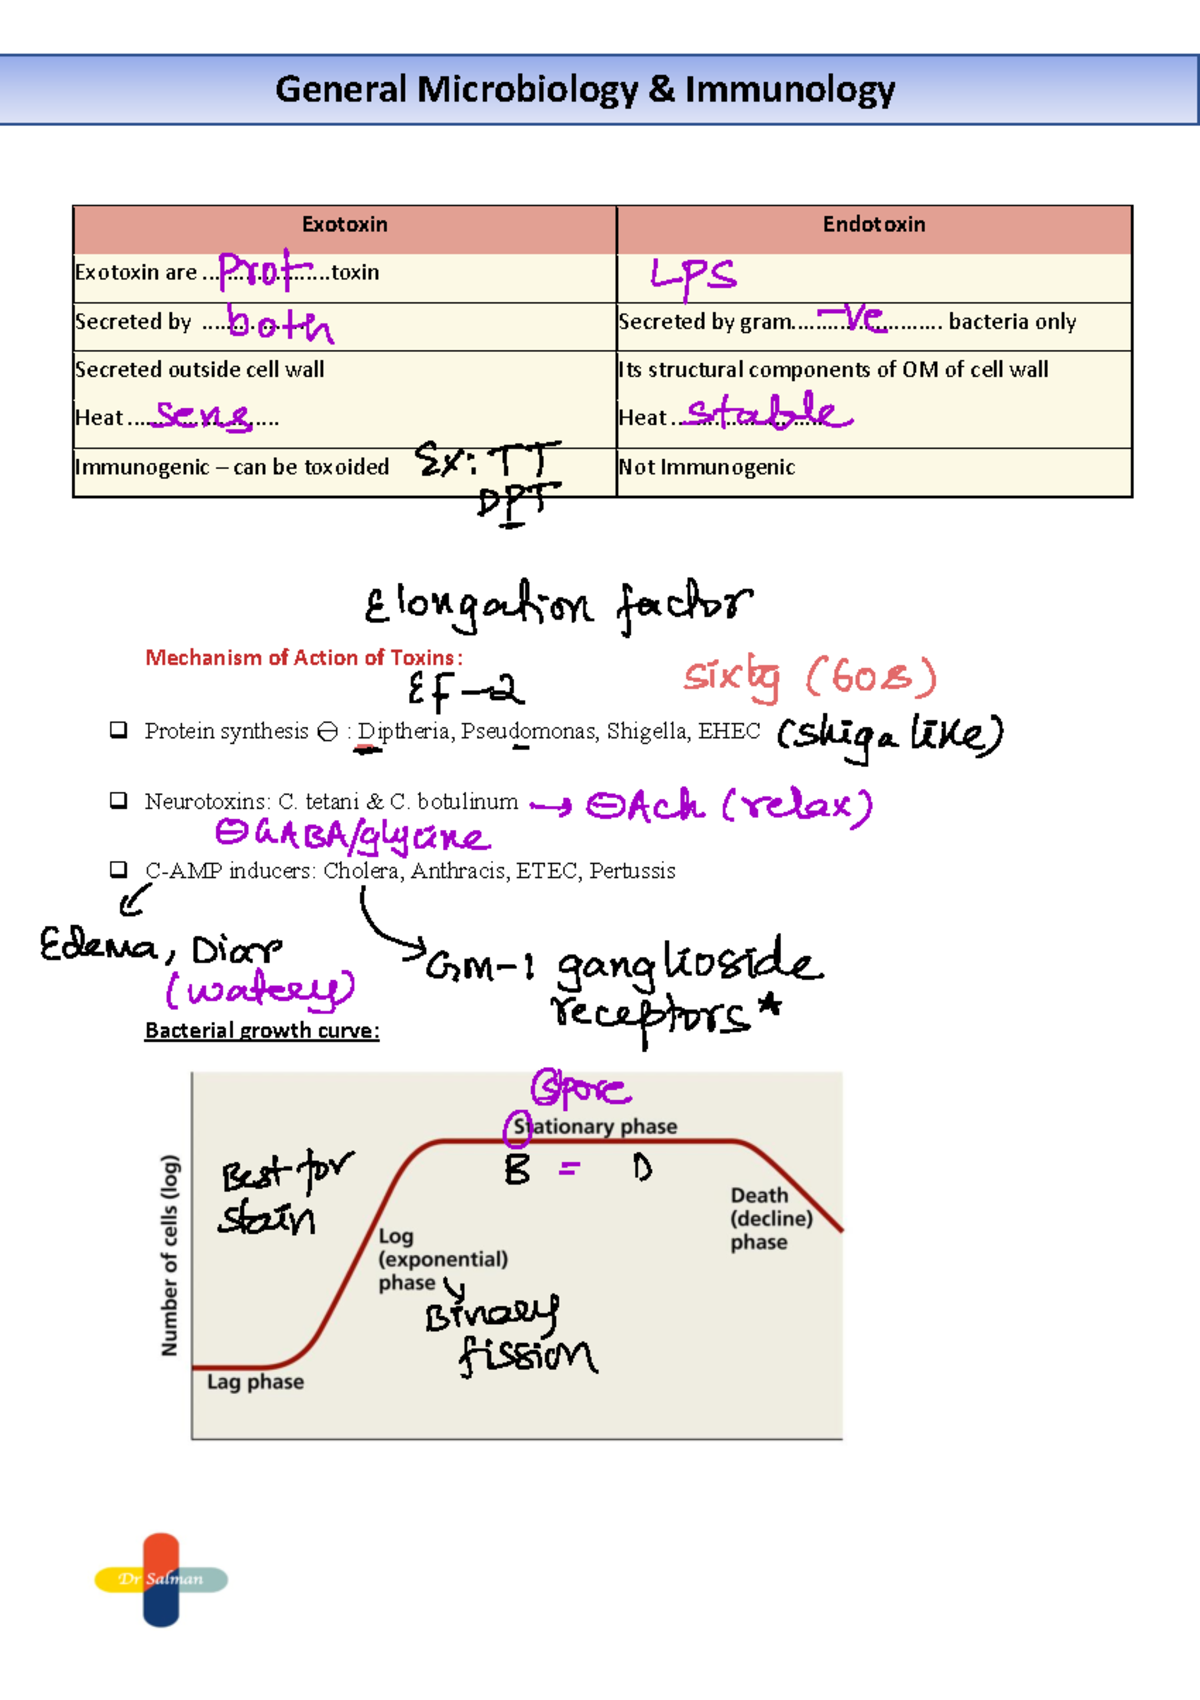 General Microbiology & Immunology
Exotoxin
Endotoxin
Exotoxin are ... Prot ...toxin
LPS
Secreted by ... both
Secreted by gram... -ve ... bacteria only
Secreted outside cell wall
Its structural components of OM of cell wall
Heat ... sens ...
Heat ... stable
Immunogenic – can be toxoided Ex: TT
DPT
Not Immunogenic
Elongation factor
Mechanism of Action of Toxins:
EF-2
sixty (60s)
❑ Protein synthesis ⊖ : Diptheria, Pseudomonas, Shigella, EHEC (shiga like)
❑ Neurotoxins: C. tetani & C. botulinum → ⊖ Ach (relax)
⊖ GABA/glycine
❑ C-AMP inducers: Cholera, Anthracis, ETEC, Pertussis
Edema, Diar
(watery)
GM-1 ganglioside
receptors*
Bacterial growth curve:
Spore
Stationary phase
B = D
Best for
stain
Death
(decline)
phase
Log
(exponential)
phase
Binary
fission
Lag phase
Number of cells (log)
Dr Salman